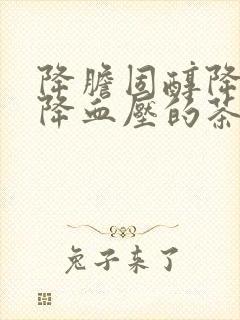 降膽固醇降
降血壓的茶
兔子来了